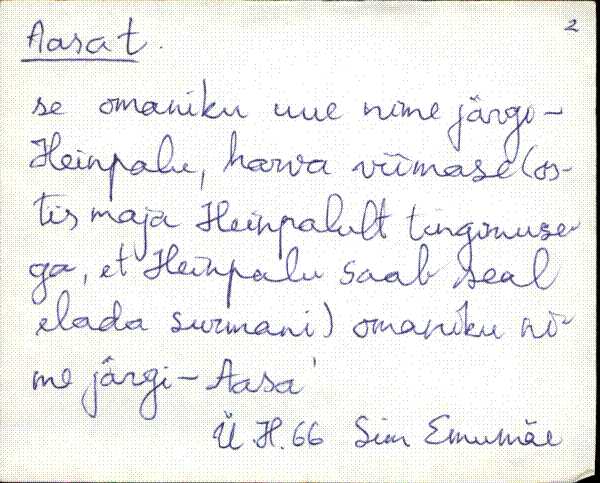 2
Aasa t.
se omaniku uue nime järgi –
Heinpalu, harva viimase (os-
tis maja Heinpalult tingimuse-
ga, et Heinpalu saab seal
elada surmani) omaniku ni-
me järgi – Aasa
Ü.H. 66 Siim Emumäe